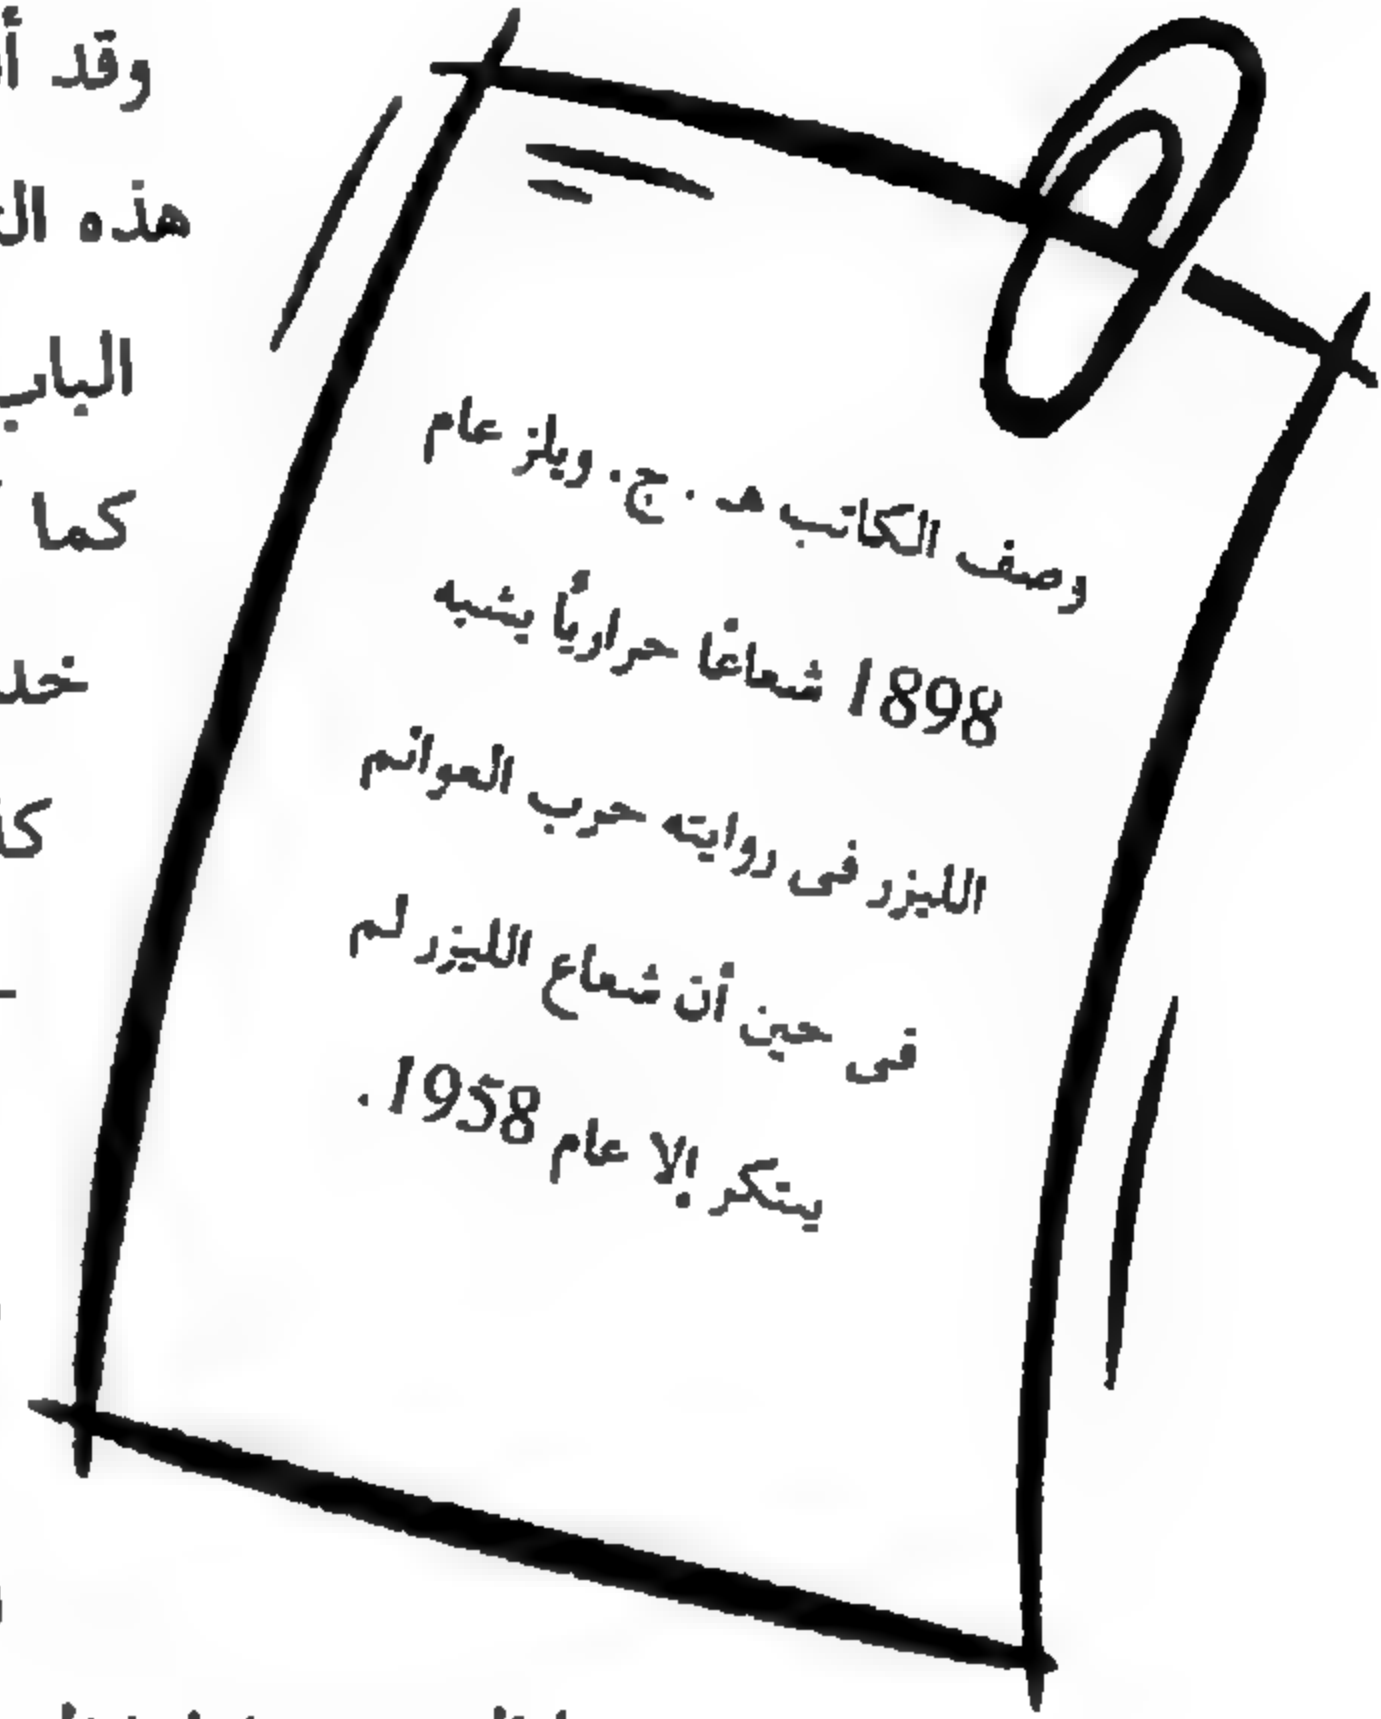 وقد
هذه
كما
وصف الكاتب هـ . ج . ويلز عام
1898 شعاعًا حراريًا يشبه
الليزر فى روايته حرب العوالم
فى حين أن شعاع الليزر لم
يبتكر إلا عام 1958 .